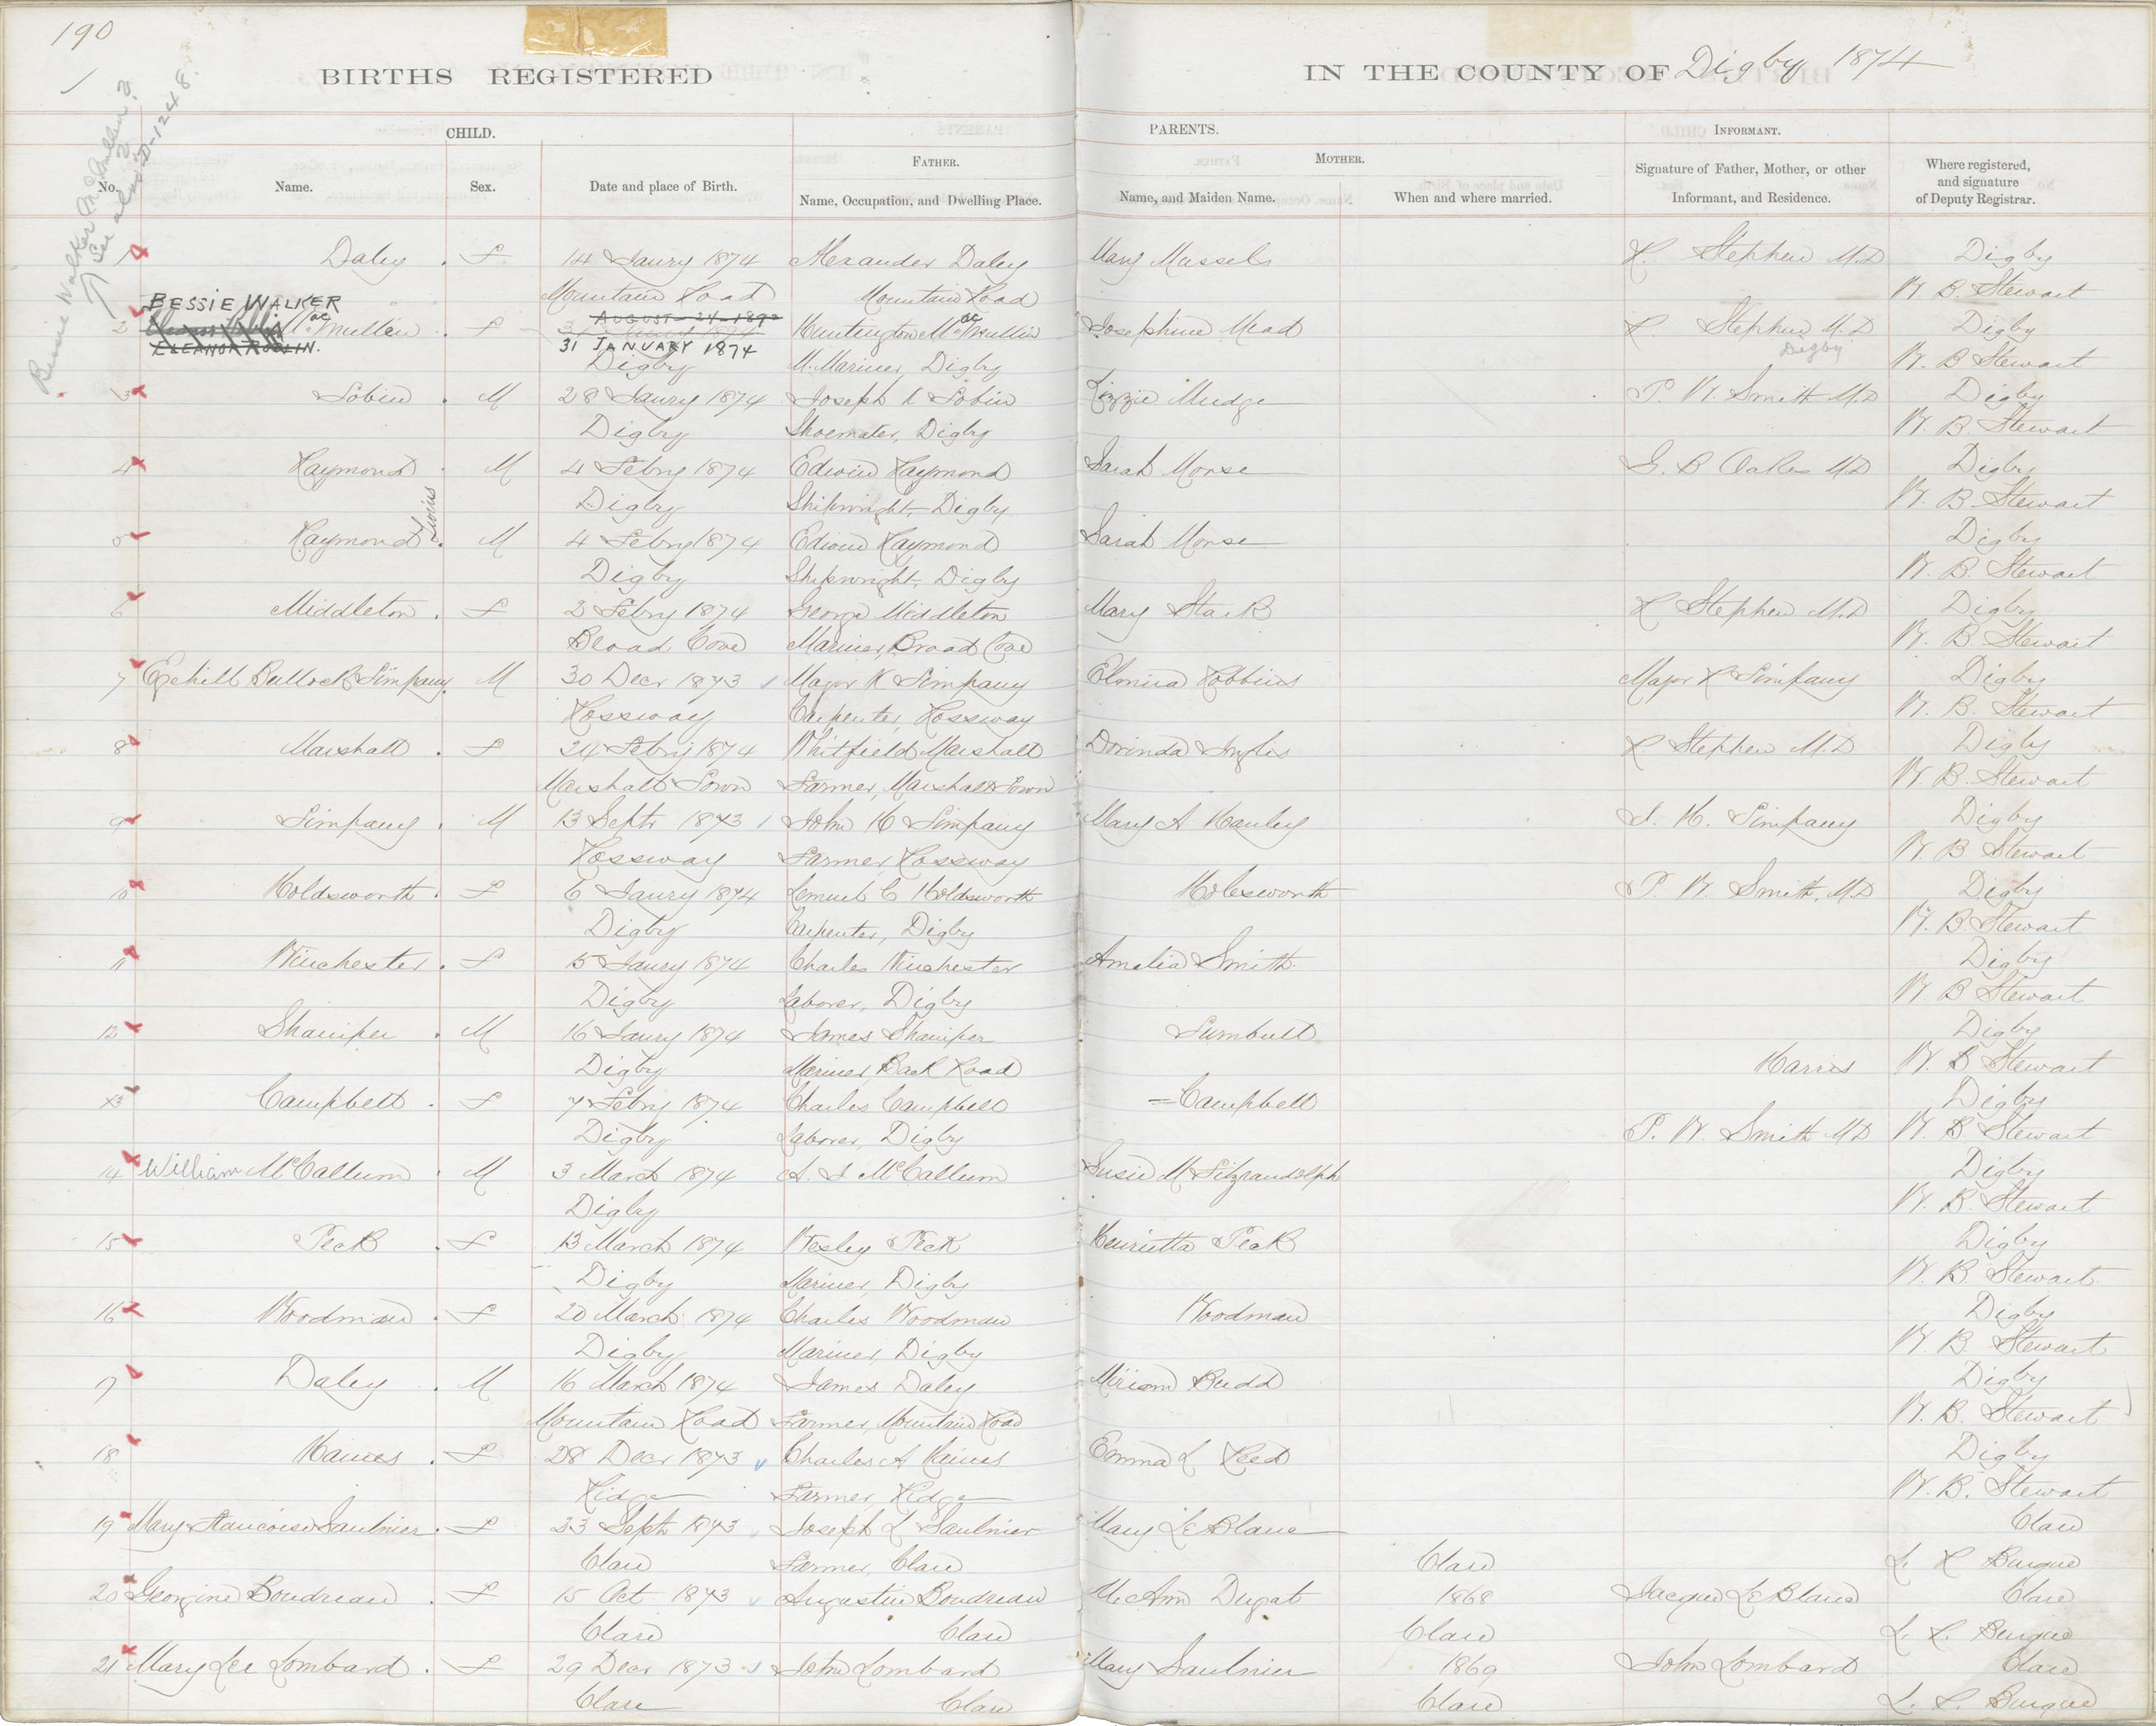 190
BIRTHS REGISTERED IN THE COUNTY OF Digby 1874
Bessie Walker McMullin?
See also D-1248.
CHILD. PARENTS. INFORMANT.
FATHER. MOTHER.
No. Name. Sex. Date and place of Birth. Name, Occupation, and Dwelling Place. Name, and Maiden Name. When and where married. Signature of Father, Mother, or other Informant, and Residence. Where registered, and signature of Deputy Registrar.
1 Daley . F 14 Jaury 1874 Alexander Daley Mary Mussels R. Stephen M.D Digby
Mountain Road Mountain Road W. B. Stewart
BESSIE WALKER AUGUST-24-1892
2 McMullin . F 31 Jaury 1874 Huntington McMullin Josephine Mead R Stephen M.D Digby
ELEANOR ROBLIN. 31 JANUARY 1874 Digby
Digby M. Mariner, Digby W. B Stewart
3 Tobin . M 28 Jaury 1874 Joseph Tobin Lizzie Mudge P. W. Smith M.D Digby
Digby Shoemaker, Digby W. B Stewart
4 Raymond . M 4 Febry 1874 Edwin Raymond Sarah Morse G. B Oakes MD Digby
Twins
Digby Shipwright, Digby W. B Stewart
5 Raymond . M 4 Febry 1874 Edwin Raymond Sarah Morse Digby
Digby Shipwright, Digby W. B. Stewart
6 Middleton . F 2 Febry 1874 George Middleton Mary Stark R Stephen M.D Digby
Broad Cove Mariner, Broad Cove W. B Stewart
7 Ezekill Bullock Timpany . M 30 Decr 1873 Major R Timpany Elmira Robbins Major R Timpany Digby
Rossway Carpenter, Rossway W. B. Stewart
8 Marshall . F 24 Febry 1874 Whitfield Marshall Dorinda Ingles R Stephen M.D Digby
Marshall Town Farmer, Marshall Town W. B. Stewart
9 Timpany . M 13 Septr 1873 John H Timpany Mary A Hanley J. H. Timpany Digby
Rossway Farmer, Rossway W. B Stewart
10 Holdsworth . F 6 Jaury 1874 Lemuel C Holdsworth Holdsworth P. W. Smith, M.D Digby
Digby Carpenter, Digby W. B. Stewart
11 Winchester . F 15 Jaury 1874 Charles Winchester Amelia Smith. Digby
Digby Laborer, Digby W. B Stewart
12 M 16 Jaury 1874 James Turnbull Digby
Digby Mariner, Back Road Harris W. B Stewart
13 Campbell . F 7 Febry 1874 Charles Campbell = Campbell Digby
Digby Laborer, Digby P. W. Smith MD W. B Stewart
14 William McCallum . M 3 March 1874 McCallum Susie M Fitzrandolph Digby
Digby W. B. Stewart
15 Peck . F 13 March 1874 Wesley Peck Henrietta Peck Digby
Digby Mariner, Digby W. B. Stewart
16 Woodman . F 20 March 1874 Charles Woodman Woodman Digby
Digby Mariner, Digby W. B. Stewart
17 Daley . M 16 March 1874 James Daley Miriam Budd Digby
Mountain Road Farmer, Mountain Road W. B. Stewart
18 Haines . F 28 Decr 1873 Charles A Haines Emma L Reed Digby
Ridge Farmer, Ridge W. B. Stewart
19 Mary Francoise Saulnier . F 23 Septr 1873 Joseph L Saulnier Mary LeBlanc Clare
Clare Farmer, Clare Clare L. R Bunque
20 Georgine Boudreau . F 15 Oct 1873 Augustin Boudreau Mc Ann Dugat 1868 Jacque LeBlanc Clare
Clare Clare Clare
21 Mary Lee Lombard . F 29 Decr 1873 John Lombard Mary Saulnier 1869 John Lombard Clare
Clare Clare Clare